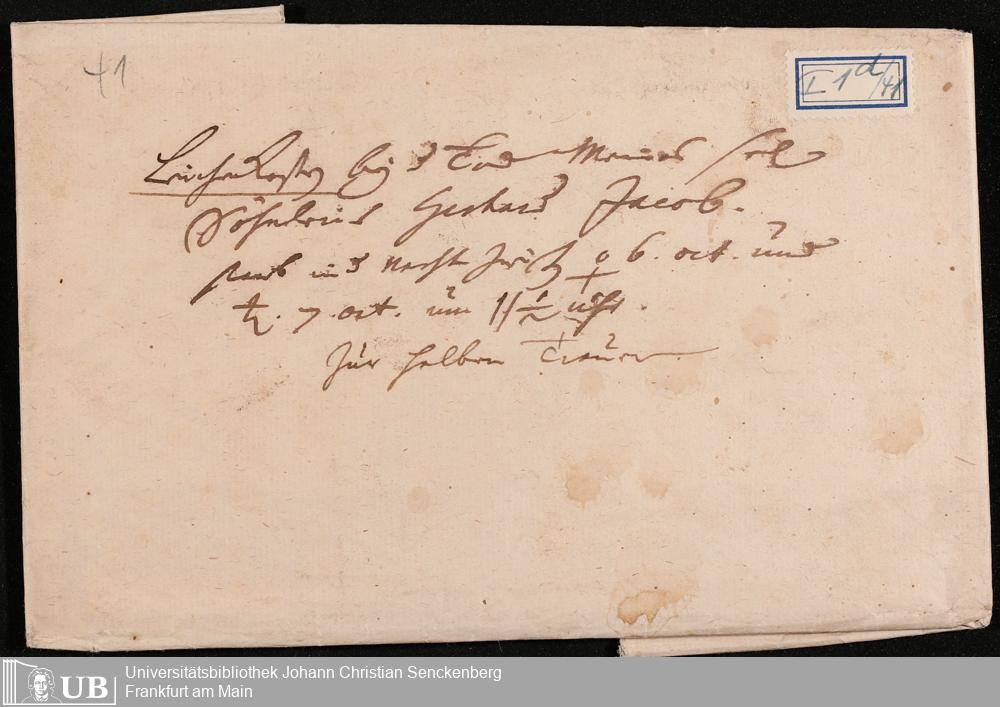 41
I 1 d/41
Leichen Kosten bey d Tod Meines sel
Söhnleins Gerhard Jacob.
starb in d Nacht zwisch ♀ 6. oct. und
♄. 7. oct. um 11 1/2 uhr.
Zur halben Trauer
UB
Universitätsbibliothek Johann Christian Senckenberg
Frankfurt am Main